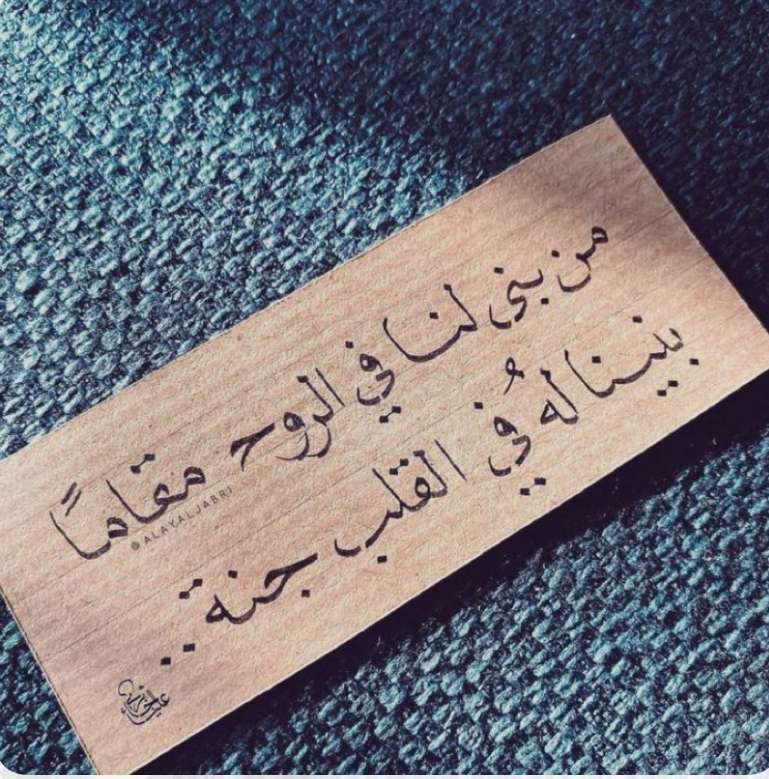 من بنى لنا في الروح مقامًا
بنينا لهُ في القلب جنة..
@ALAYALJABRI